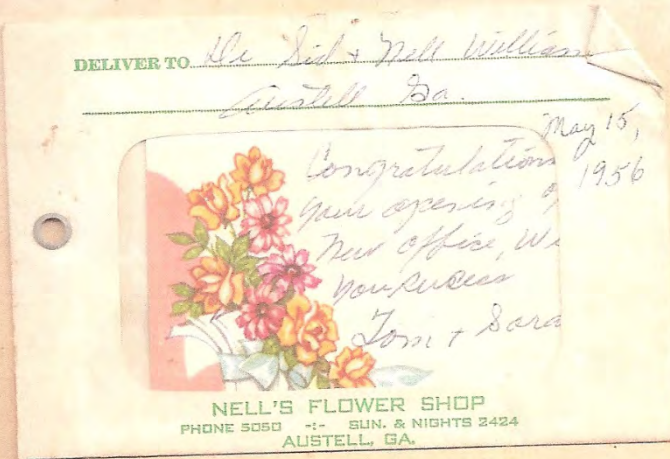 DELIVER TO Dr Sid + Nell William
Austell Ga.
May 15,
1956
Congratulations
your opening of
new office, Wi
you success
Tom + Sara
NELL'S FLOWER SHOP
PHONE 5050 -:- SUN. & NIGHTS 2424
AUSTELL, GA.